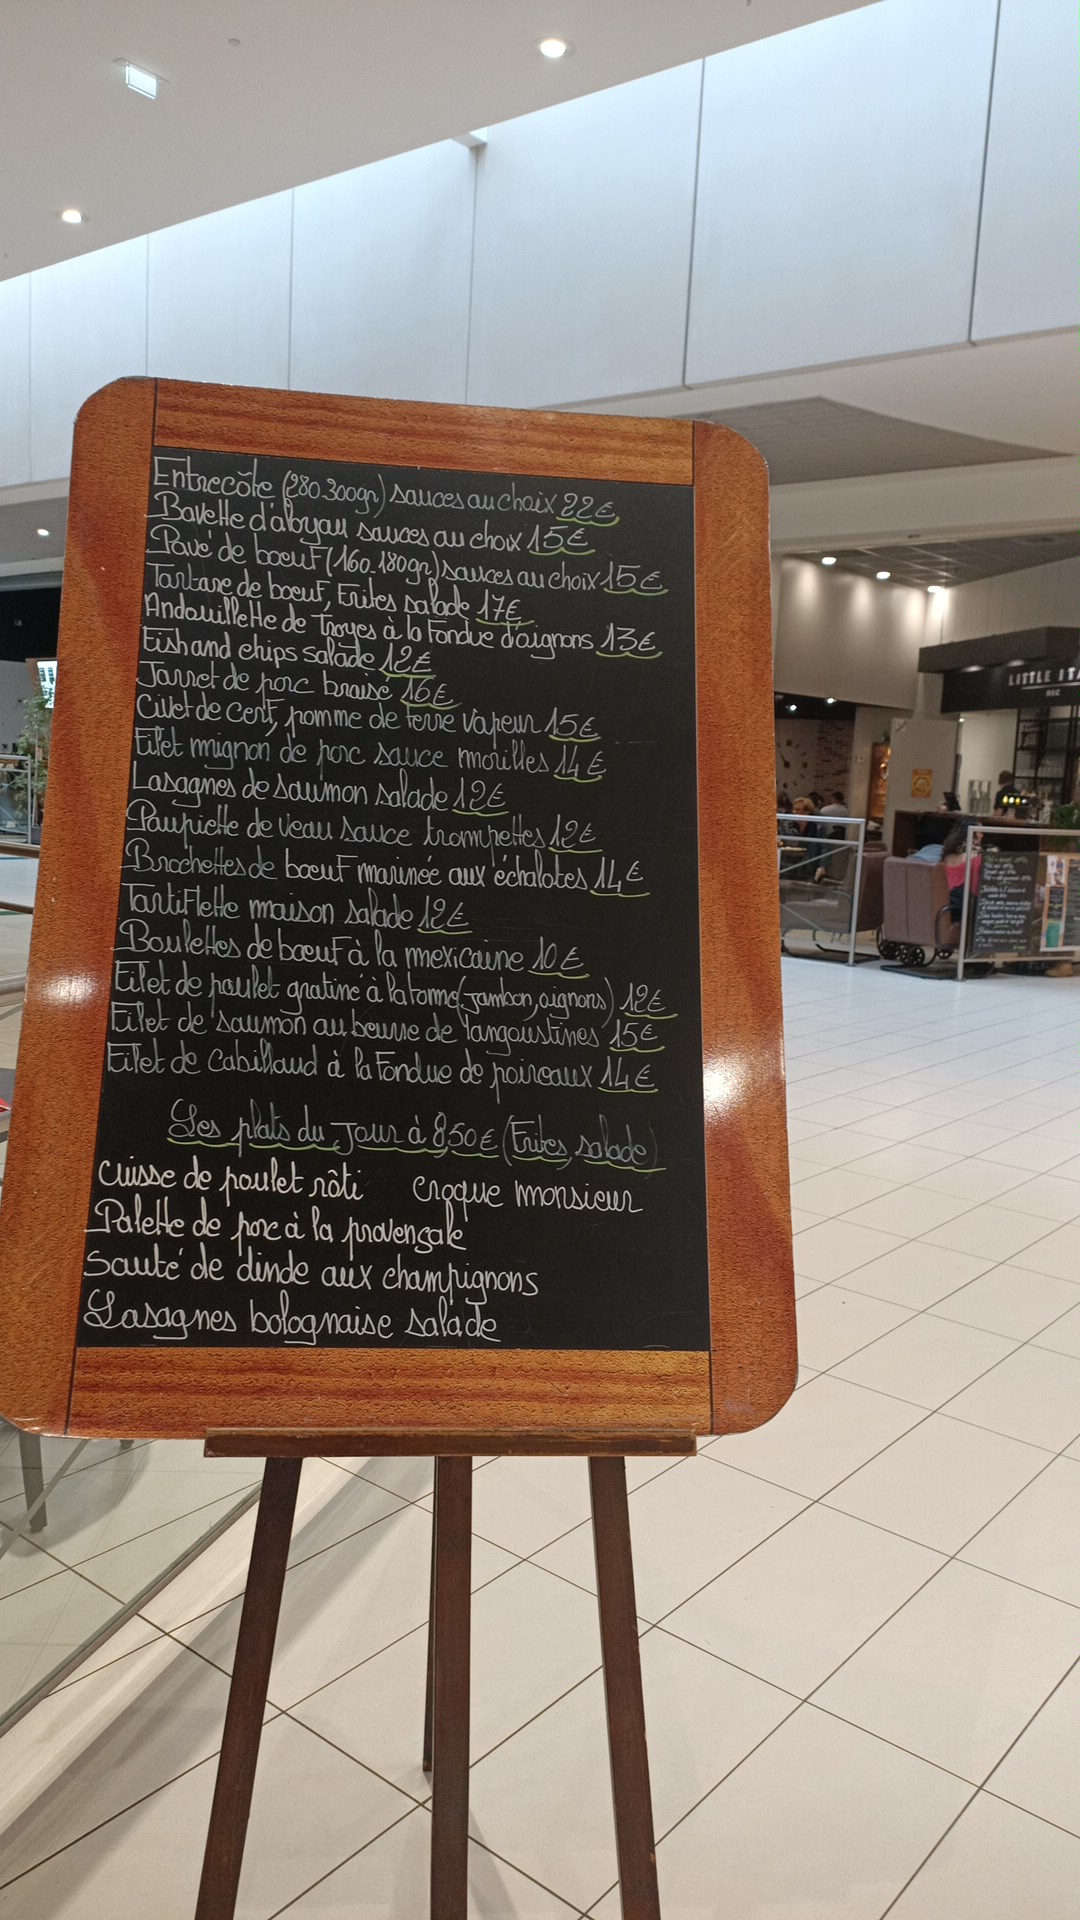 Entrecôte (280.300gr) sauces au choix 22€
Bavette d'aloyau sauces au choix 15€
Pavé de boeuf (160.180gr) sauces au choix 15€
Tartare de boeuf, Frites salade 17€
Andouillette de Troyes à la Fondue d'oignons 13€
Fish and chips salade 12€
Jarret de porc braisé 16€
Civet de cerf, pomme de terre vapeur 15€
Filet mignon de porc sauce morilles 14€
Lasagnes de saumon salade 12€
Paupiette de veau sauce trompettes 12€
Brochettes de boeuf marinée aux échalotes 14€
Tartiflette maison salade 12€
Boulettes de boeuf à la mexicaine 10€
Filet de poulet gratiné à la tomme (jambon, oignons) 12€
Filet de saumon au beurre de langoustines 15€
Filet de cabillaud à la Fondue de poireaux 14€
Les plats du Jour à 8,50€ (Frites, salade)
cuisse de poulet rôti croque monsieur
Palette de porc à la provençale
Sauté de dinde aux champignons
Lasagnes bolognaise salade
LITTLE ITA